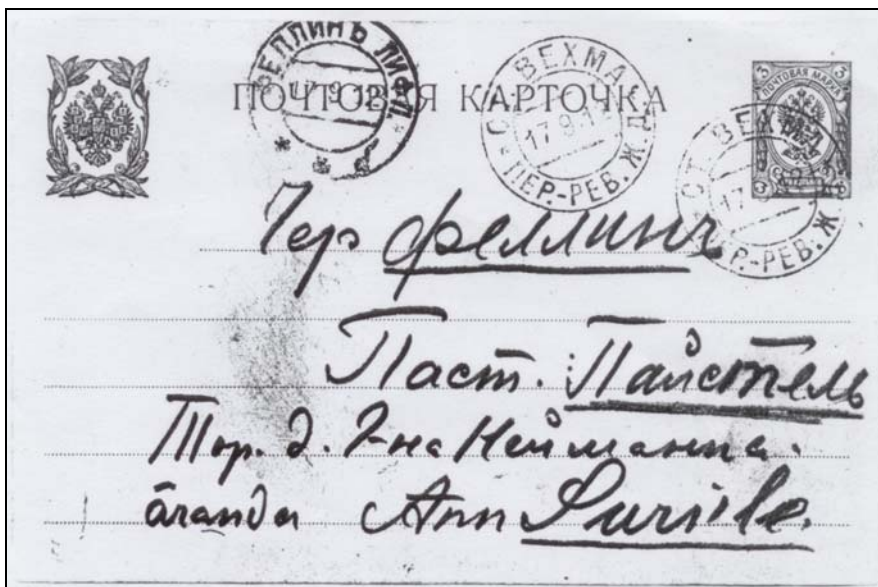 ПОЧТОВАЯ КАРТОЧКА
ФЕЛЛИНЪ ЛИФЛ.
17 9 12
СТ. ВЕХМА П.
17.9.1
ПЕР.-РЕВ. Ж. Д.
3 ПОЧТОВАЯ МАРКА 3
СТ. ВЕХМА
17
ПЕР.-РЕВ. Ж.
3 3
Чер Феллинъ
Паст. Пайстель
Тор. д. Г-на Неймана.
äranda Ann Surile.